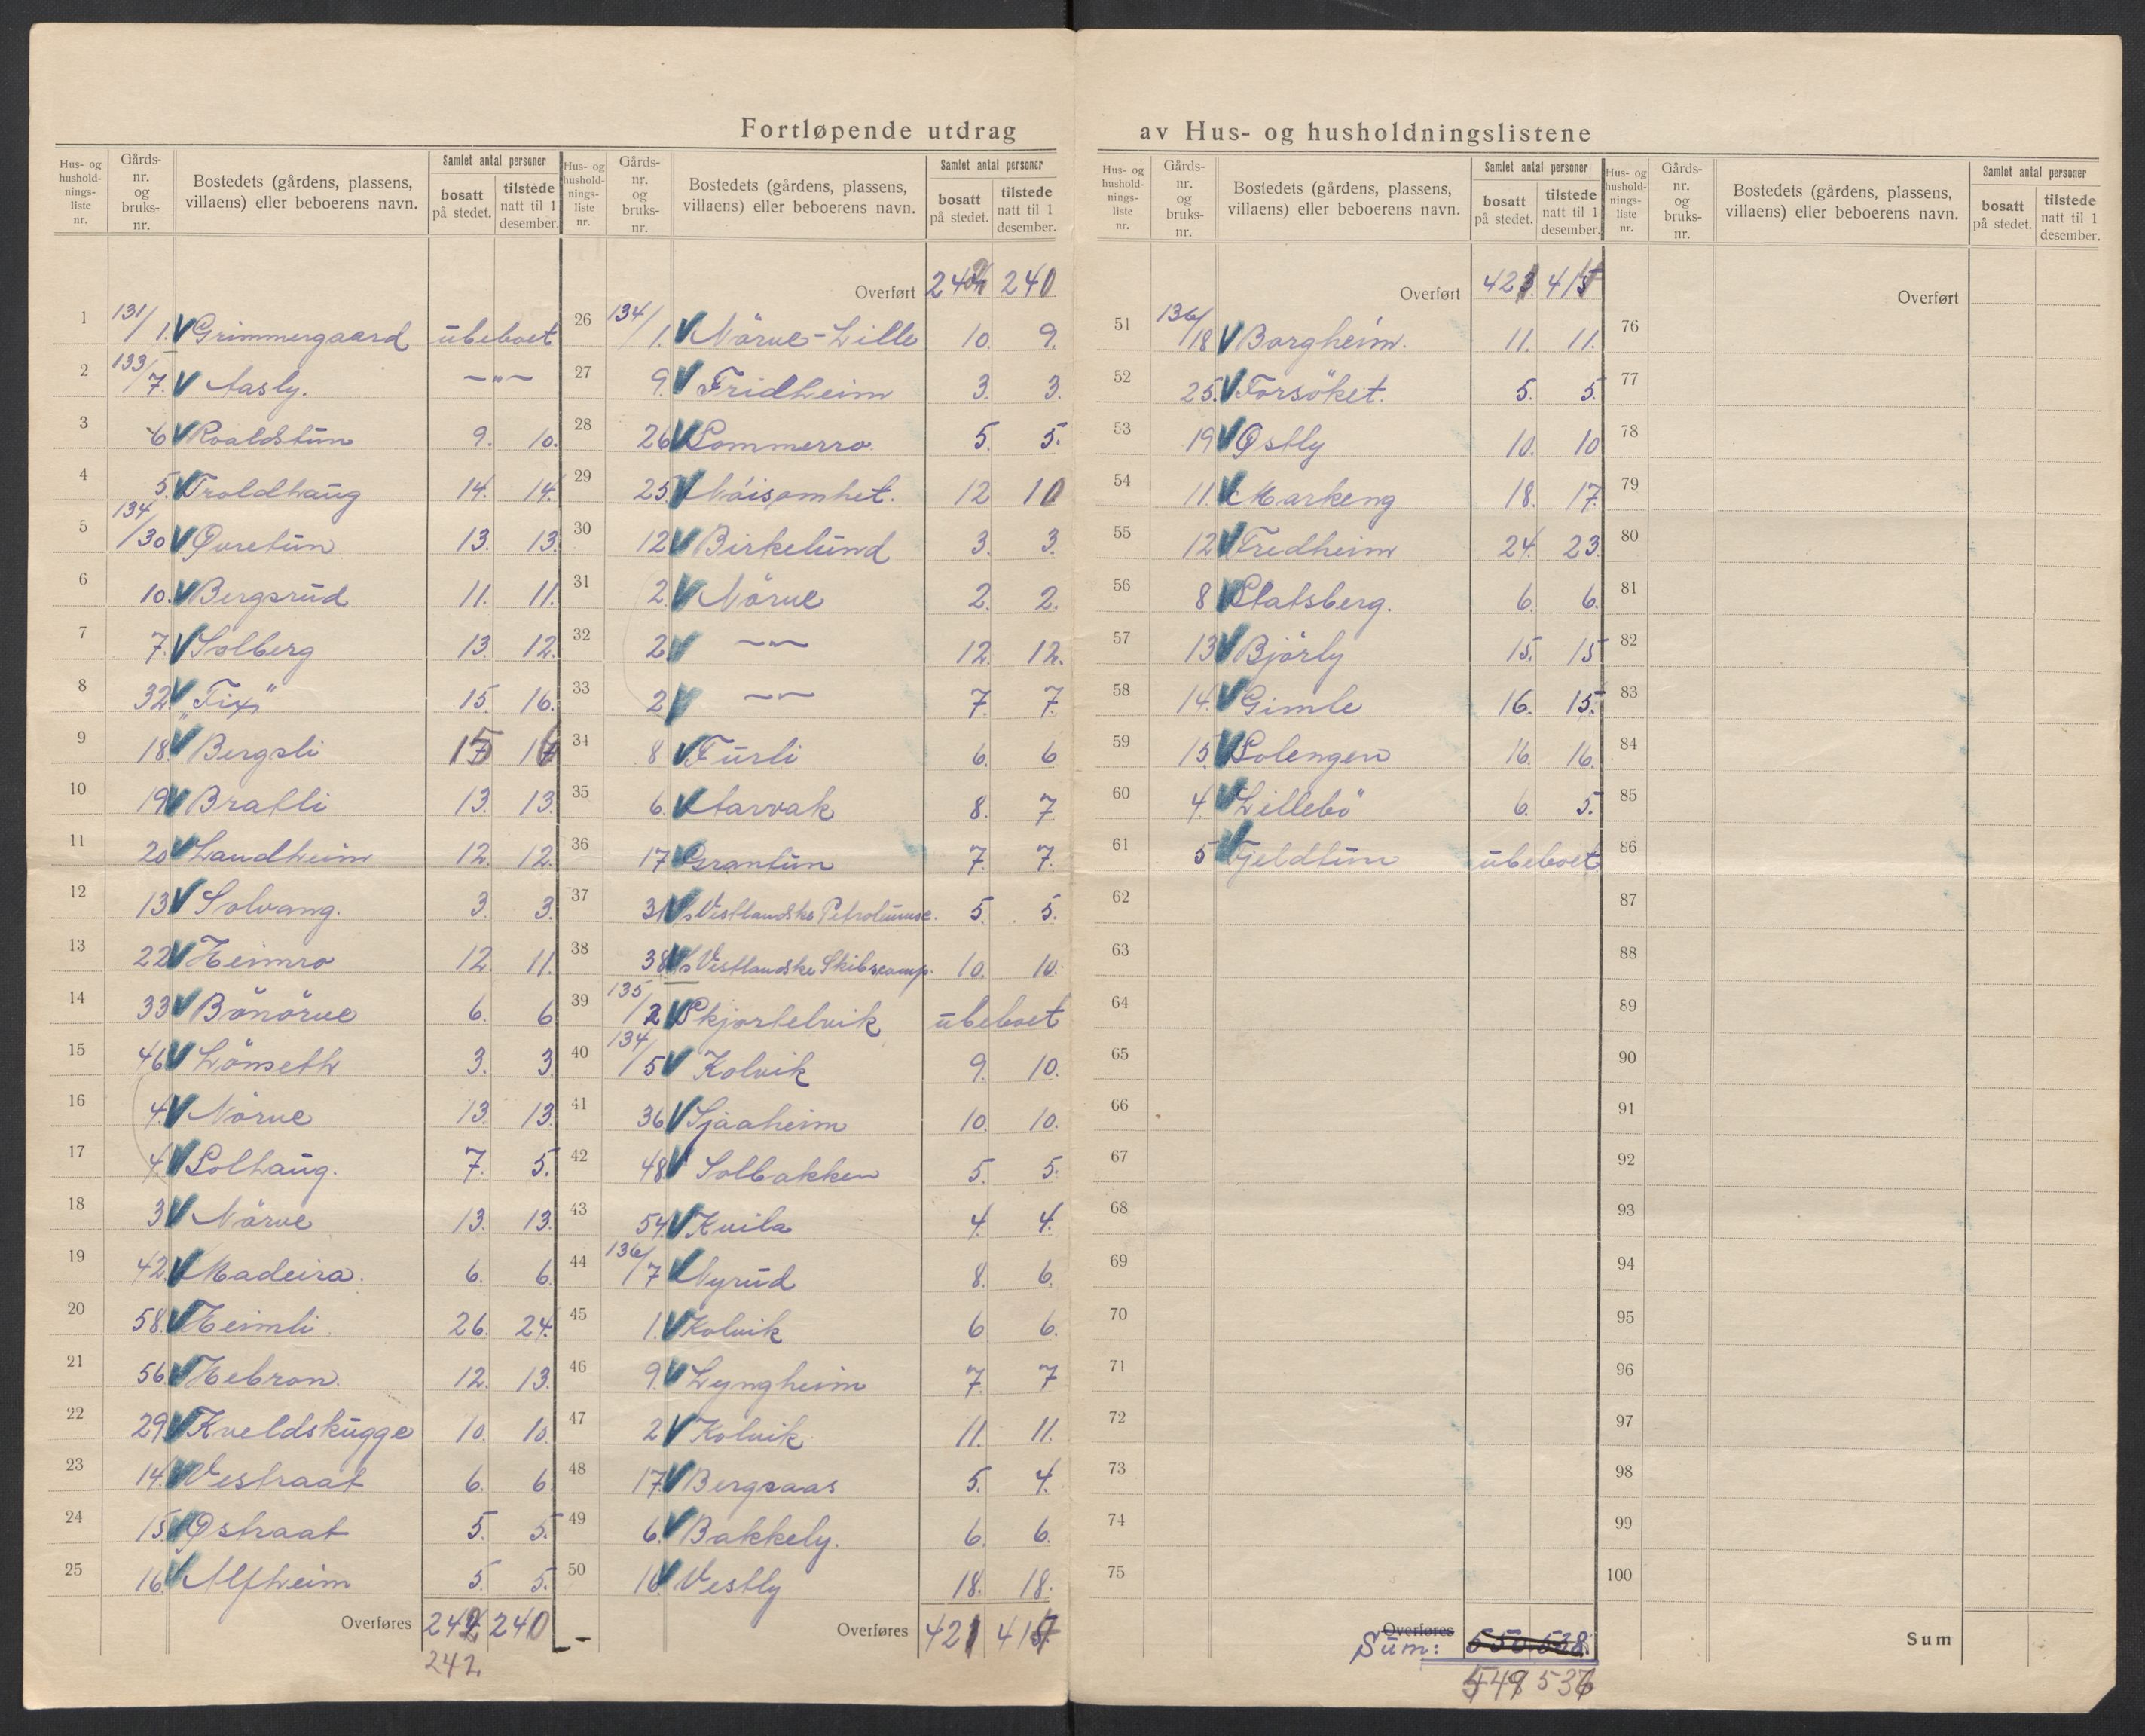 Fortløpende utdrag av Hus- og husholdningslistene
Hus- og hushold- nings- liste nr. | Gårds- nr. og bruks- nr. | Bostedets (gårdens, plassens, villaens) eller beboerens navn. | Samlet antal personer | bosatt på stedet. | tilstede natt til 1 desember.
1 131/1. Grimmergaard ubeboet
2 133/7. Aasly. —"—
3 6 Roaldstun 9. 10.
4 5. Troldhaug 14. 14.
5 134/30 Øvretun 13. 13.
6 10. Bergsrud 11. 11.
7 7. Solberg 13. 12.
8 32. „Fix" 15. 16.
9 18. Bergsli 15
10 19 Bratli 13. 13.
11 20 Landheim 12. 12.
12 13 Solvang. 3. 3.
13 22 Heimro 12. 11.
14 33 Bönörve 6. 6
15 46 Lönseth 3. 3.
16 4. Nörve 13. 13.
17 4. Solhaug. 7. 5.
18 3 Nörve 13. 13.
19 42. Madeira. 6. 6.
20 58. Heimli. 26. 24.
21 56. Hebron. 12. 13.
22 29. Kveldskugge 10. 10.
23 14. Vestraat 6. 6
24 15. Østraat 5. 5.
25 16. Alfheim 5. 5.
Overføres 242 240
242.
Hus- og hushold- nings- liste nr. | Gårds- nr. og bruks- nr. | Bostedets (gårdens, plassens, villaens) eller beboerens navn. | Samlet antal personer | bosatt på stedet. | tilstede natt til 1 desember.
Overført 240
26 134/1. Nörve-Lille 10. 9.
27 9. Fridheim 3. 3.
28 26 Sommerro. 5. 5.
29 25. Nöisomhet. 12 10
30 12 Birkelund 3. 3.
31 2. Nörve 2. 2.
32 2 —"— 12. 12.
33 2 —"— 7. 7.
34 8 Furli 6. 6
35 6. Aarvak 8. 7
36 17 Grantun 7. 7.
37 31 Vestlandske Petroleumsc. 5. 5.
38 38 Vestlandske Skibscomp. 10. 10.
39 135/2 Skjortelvik ubeboet
40 134/5 Kolvik 9. 10.
41 36 Sjaaheim 10. 10.
42 48 Solbakken 5. 5.
43 54. Kvila 4. 4.
44 136/7 Nyrud 8. 6.
45 1. Kolvik 6 6.
46 9. Lyngheim 7. 7
47 2 Kolvik 11. 11.
48 17 Bergsaas 5. 4.
49 6. Bakkely. 6. 6.
50 16 Vestly 18. 18.
Overføres 421
Hus- og hushold- nings- liste nr. | Gårds- nr. og bruks- nr. | Bostedets (gårdens, plassens, villaens) eller beboerens navn. | Samlet antal personer | bosatt på stedet. | tilstede natt til 1 desember.
Overført
51 136/18 Borgheim. 11. 11.
52 25. Forsöket. 5. 5.
53 19 Østly 10. 10
54 11. Markeng 18. 17.
55 12 Fredheim 24. 23.
56 8 Statsberg. 6. 6.
57 13 Björly 15. 15
58 14. Gimle 16. 15.
59 15. Solengen 16. 16.
60 4. Lillebö 6. 5.
61 5 Fjeldtun ubeboet.
62
63
64
65
66
67
68
69
70
71
72
73
74
75
Overføres
Sum: 550. 538.
549 536
Hus- og hushold- nings- liste nr. | Gårds- nr. og bruks- nr. | Bostedets (gårdens, plassens, villaens) eller beboerens navn. | Samlet antal personer | bosatt på stedet. | tilstede natt til 1 desember.
Overført
76
77
78
79
80
81
82
83
84
85
86
87
88
89
90
91
92
93
94
95
96
97
98
99
100
Sum